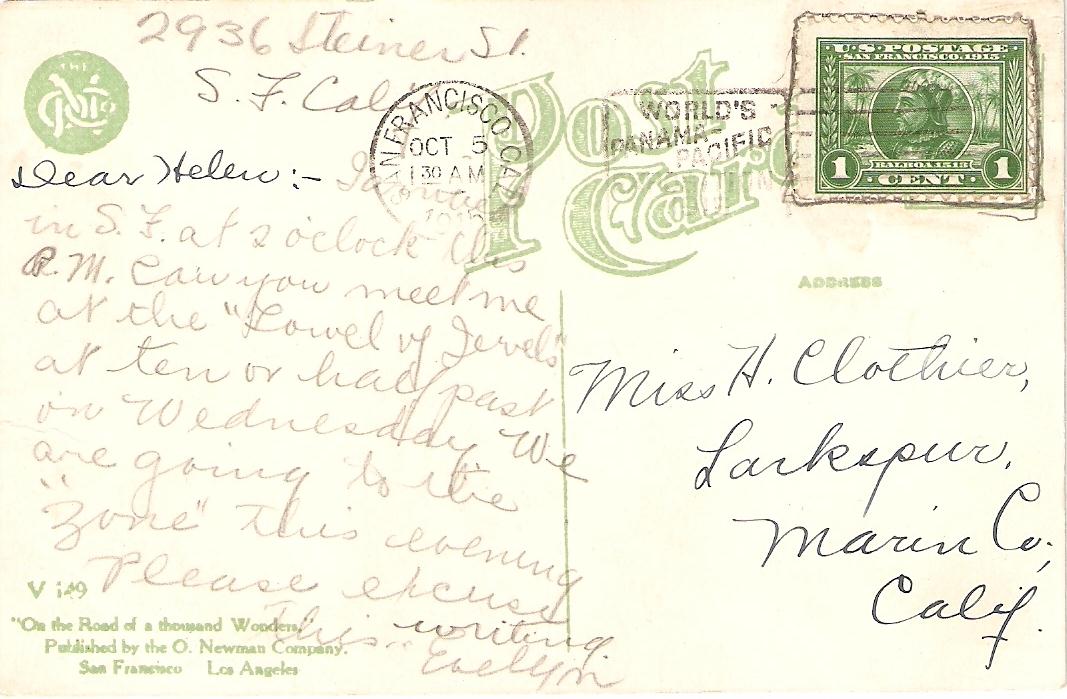 2936 Steiner St.
S. F. Cal
THE
Post
Card
SAN FRANCISCO, CAL.
OCT 5
1 30 AM
WORLD'S
PANAMA-
PACIFIC
U·S·POSTAGE
SAN FRANCISCO 1915
BALBOA 1513
1 CENT 1
Dear Helen:-
in S. F. at 2 oclock this
P.M. Can you meet me
at the "Towel of Jewels"
at ten or half past
on Wednesday We
are going to the
"Zone" this evening
Please excuse
this writing.
Evelyn
ADDRESS
Miss H. Clothier,
Larkspur,
Marin Co.,
Calif.
V 149
"On the Road of a thousand Wonders"
Published by the O. Newman Company.
San Francisco Los Angeles